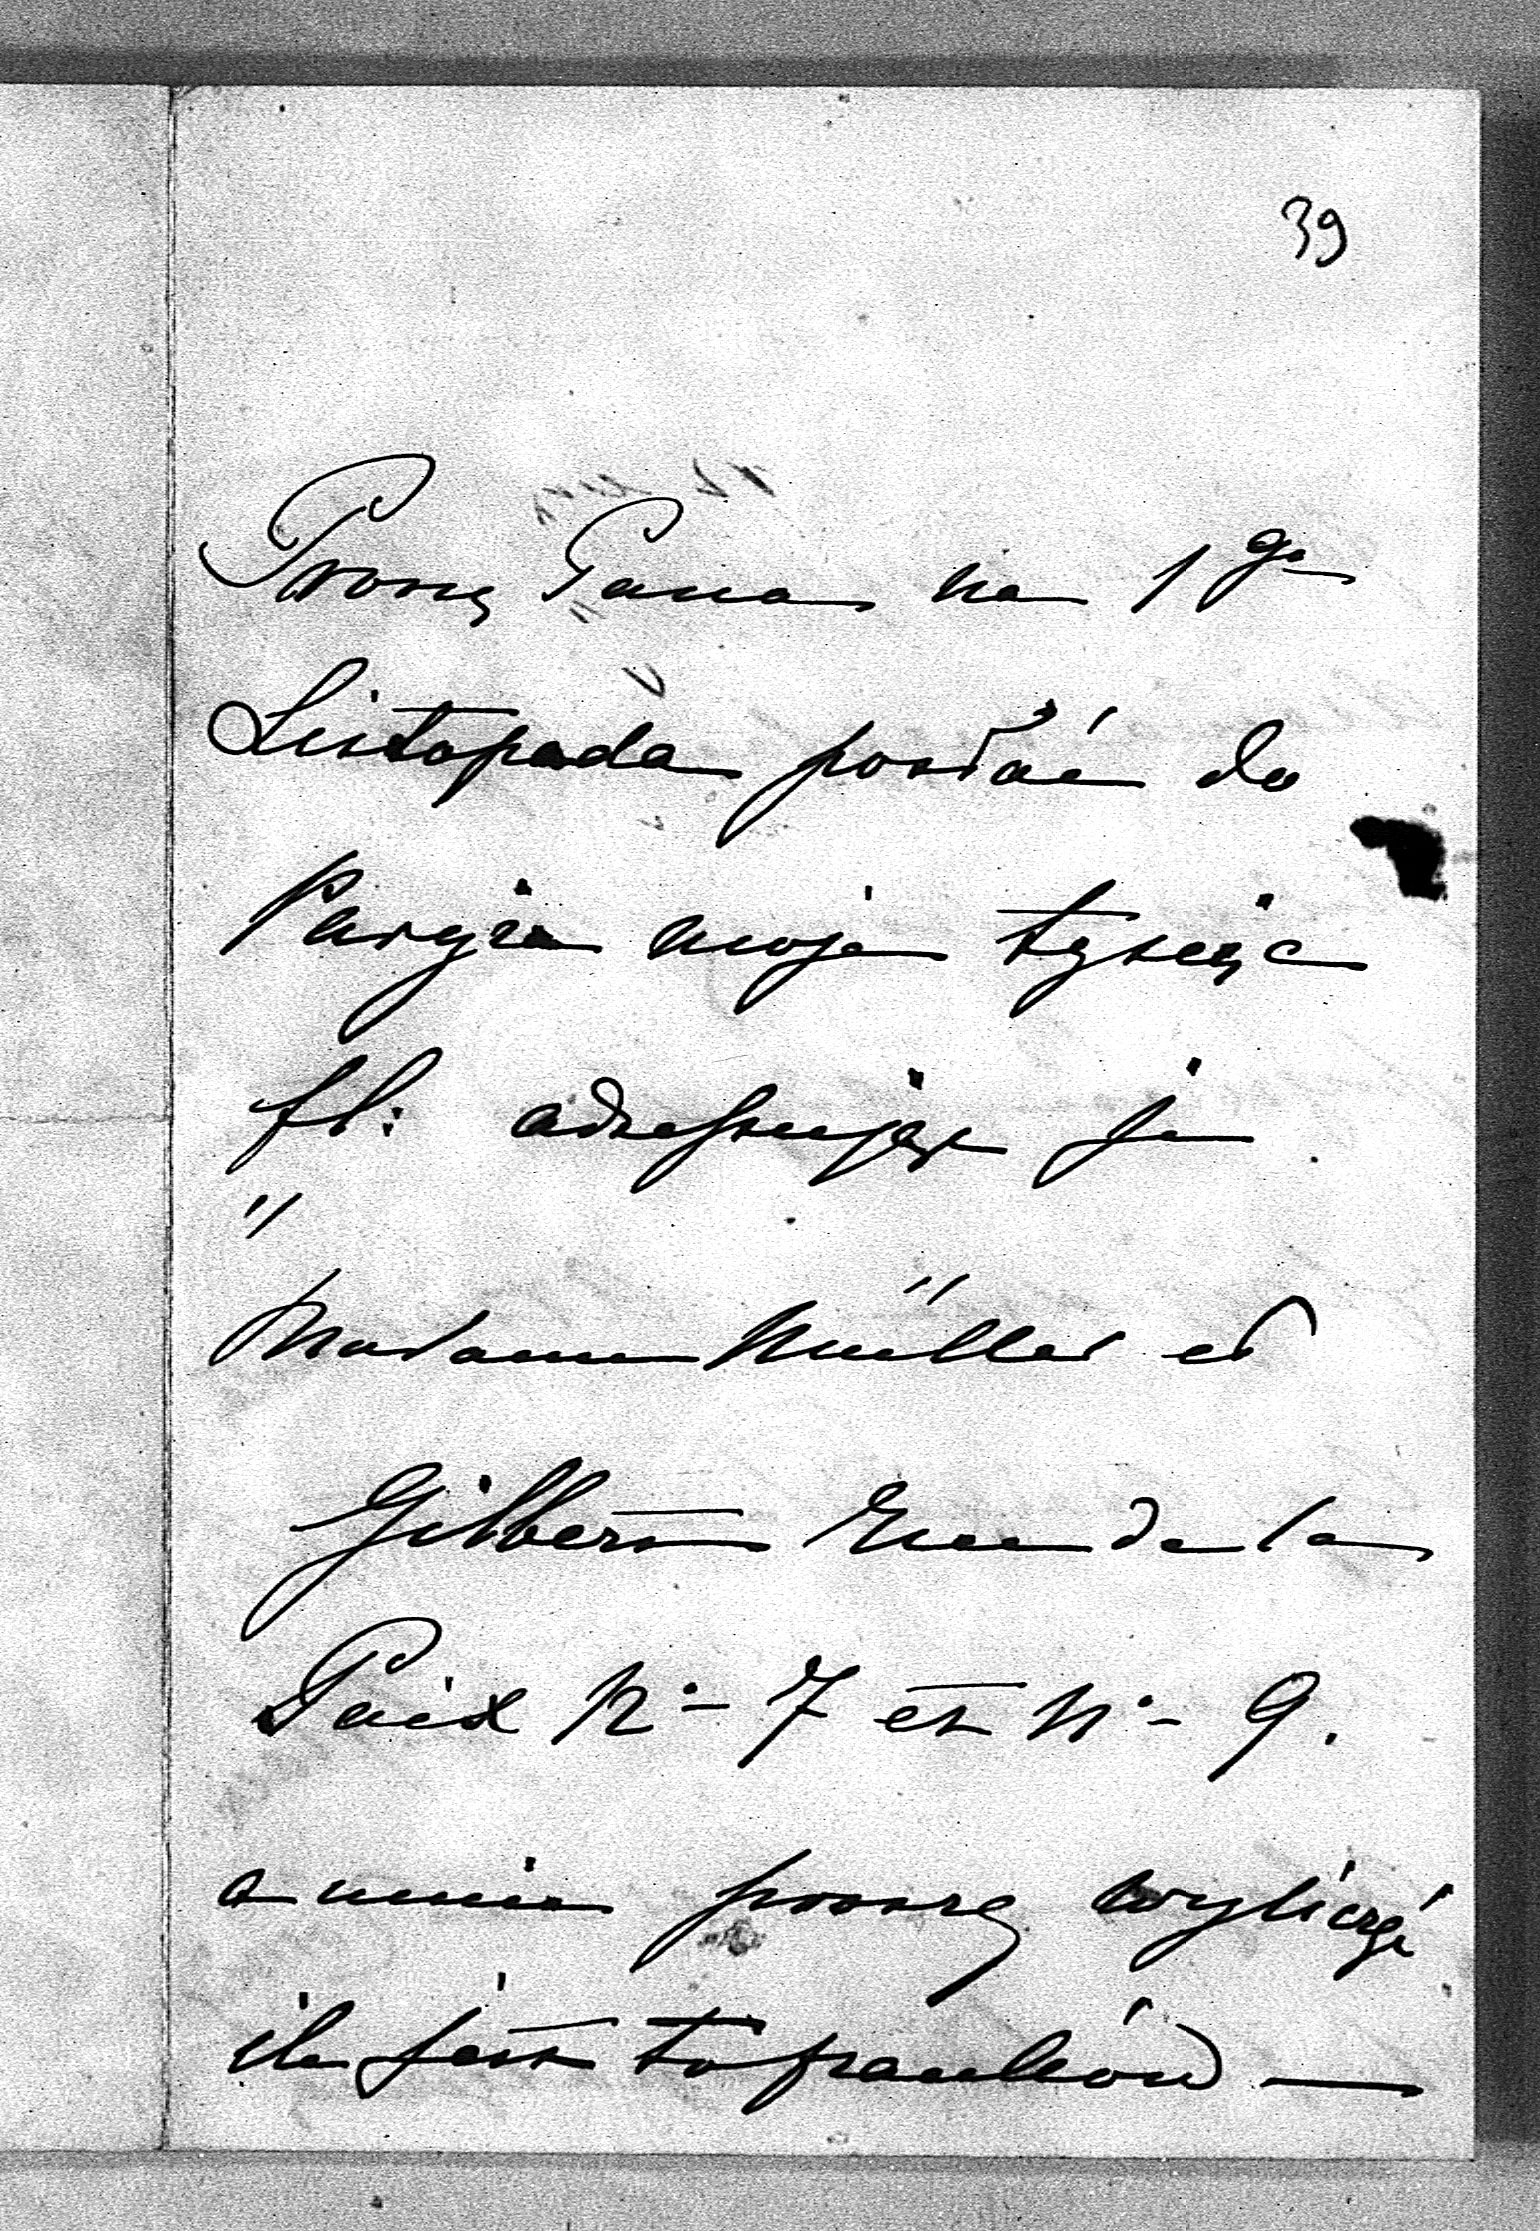 39
Proszę Pana na 1go
Listopada posłać do
Paryża moje tysiąc
fl: adresując je
"
Madame Müller et
Gilbert Rue de la
Paix No- 7 et No- 9.
a mnie proszę wyliczyć
ile jest to franków —